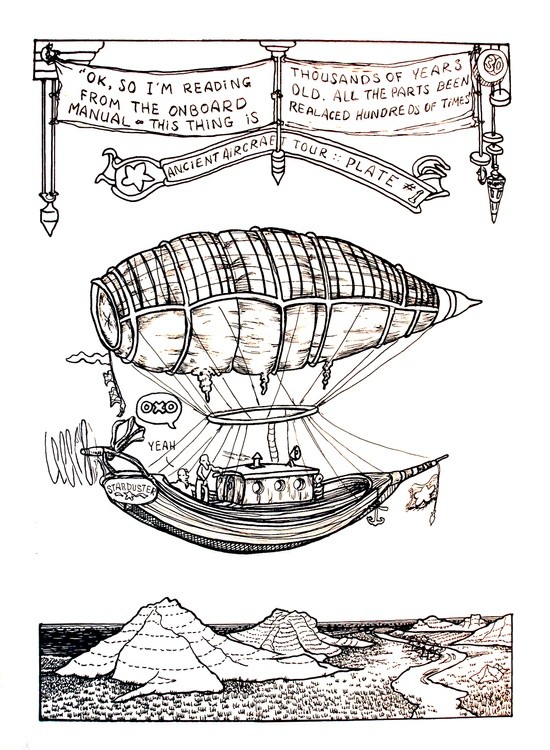 "OK, SO I'M READING
FROM THE ONBOARD
MANUAL ∞ THIS THING IS
THOUSANDS OF YEARS
OLD. ALL THE PARTS BEEN
REALACED HUNDREDS OF TIMES"
ANCIENT AIRCRAFT TOUR :: PLATE #1
OXO
YEAH
STARDUSTER